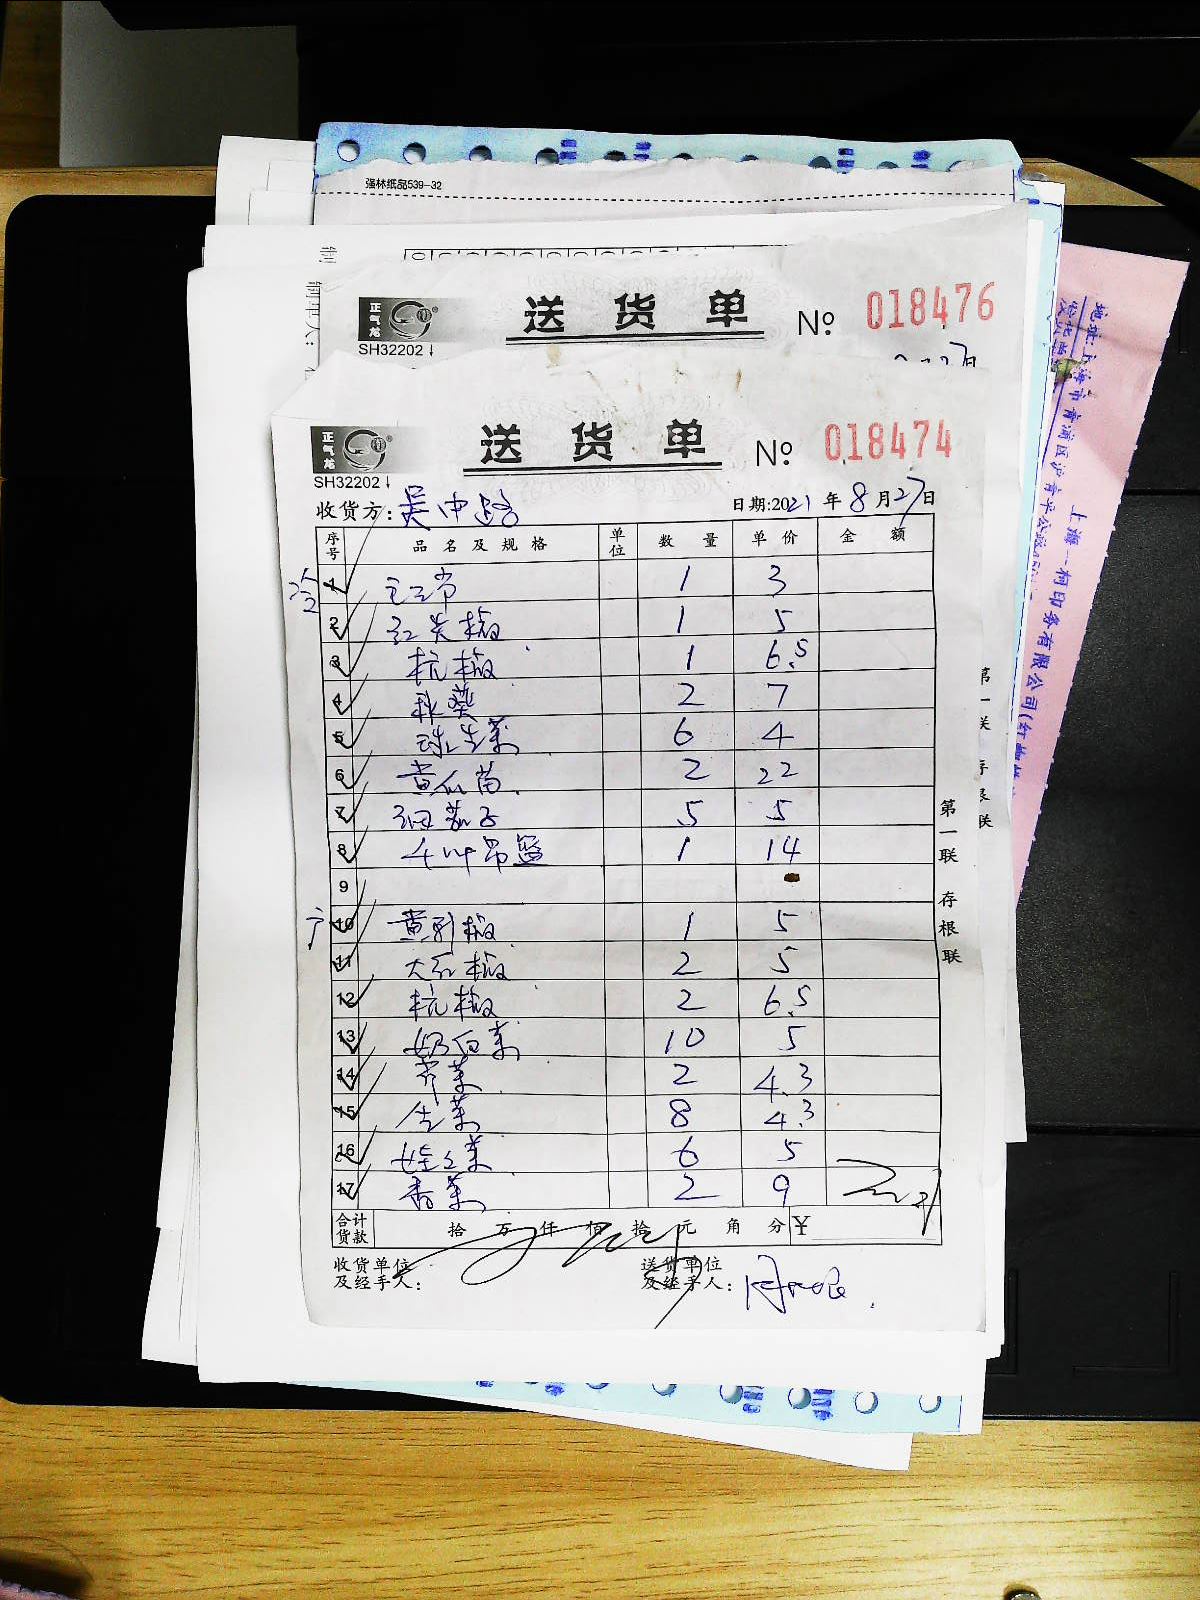 强林纸品539-32
正气龙
SH32202
送货单 № 018476
27日
正气龙
SH32202
送货单 № 018474
收货方: 吴中路 日期:2021年8月27日
序号 品名及规格 单位 数量 单价 金额
1 1 3
2 红尖椒 1 5
3 杭椒 1 6.5
4 秋葵 2 7
5 球生菜 6 4
6 黄瓜苗 2 22
7 细茄子 5 5
8 1 14
9
10 黄彩椒 1 5
11 大红椒 2 5
12 杭椒 2 6.5
13 奶白菜 10 5
14 芹菜 2 4.3
15 生菜 8 4.3
16 娃娃菜 6 5
17 香菜 2 9
合计货款 拾 万 仟 佰 拾 元 角 分 ¥
收货单位及经手人: 送货单位及经手人:
第一联 存根联
第一联 存根联
地址:上海市青浦区沪青平公路
上海一柯印务有限公司